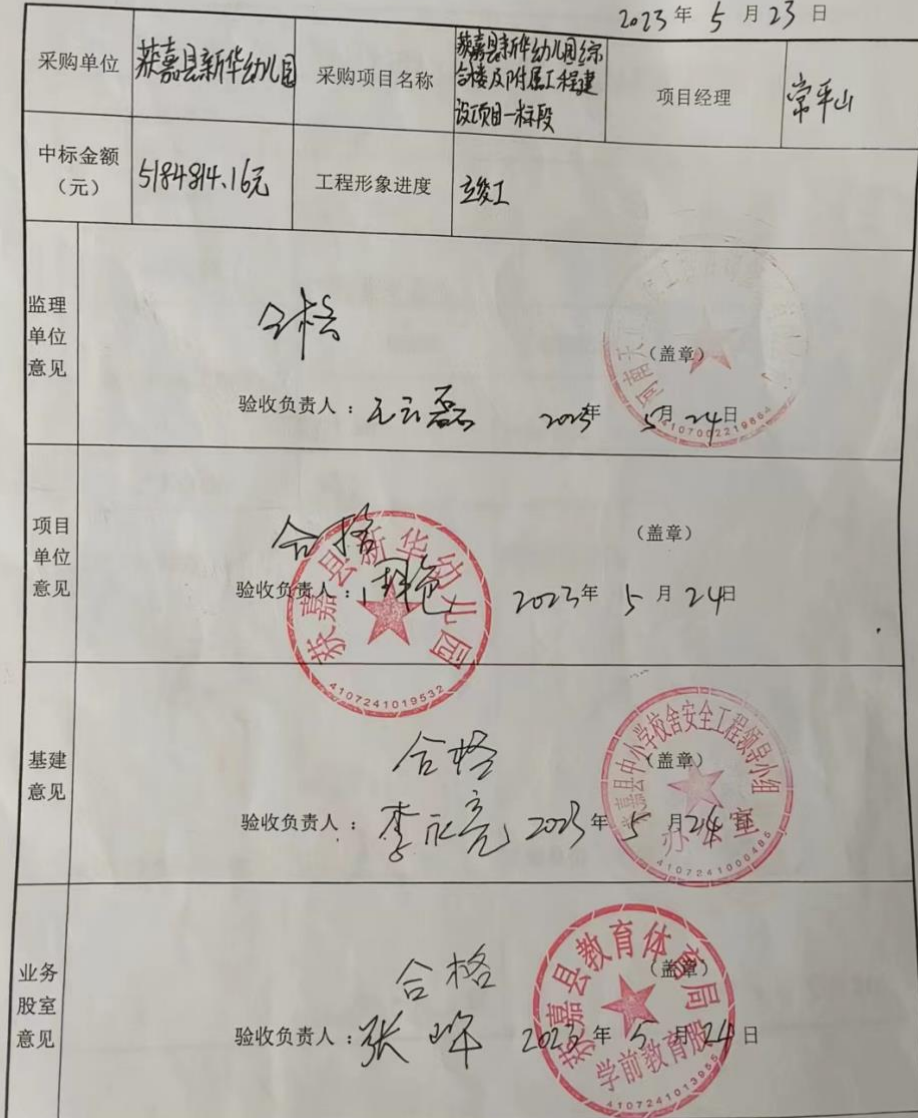 2023年 5 月 23 日
采购单位 获嘉县新华幼儿园 采购项目名称 获嘉县新华幼儿园综合楼及附属工程建设项目一标段 项目经理 常平山
中标金额（元） 5184814.16元 工程形象进度 竣工
监理单位意见
合格
（盖章）
验收负责人： 元云磊 2023年 5月24日
4107002219664
项目单位意见
合格
（盖章）
验收负责人： 2023年 5 月 24日
获嘉县新华幼儿园
4107241019532
基建意见
合格
（盖章）
验收负责人： 李永亮 2023年 5 月24日
获嘉县中小学校舍安全工程领导小组
办公室
4107241000485
业务股室意见
合格
（盖章）
验收负责人： 张晔 2023年 5 月24日
获嘉县教育体育局
学前教育股
4107241013955